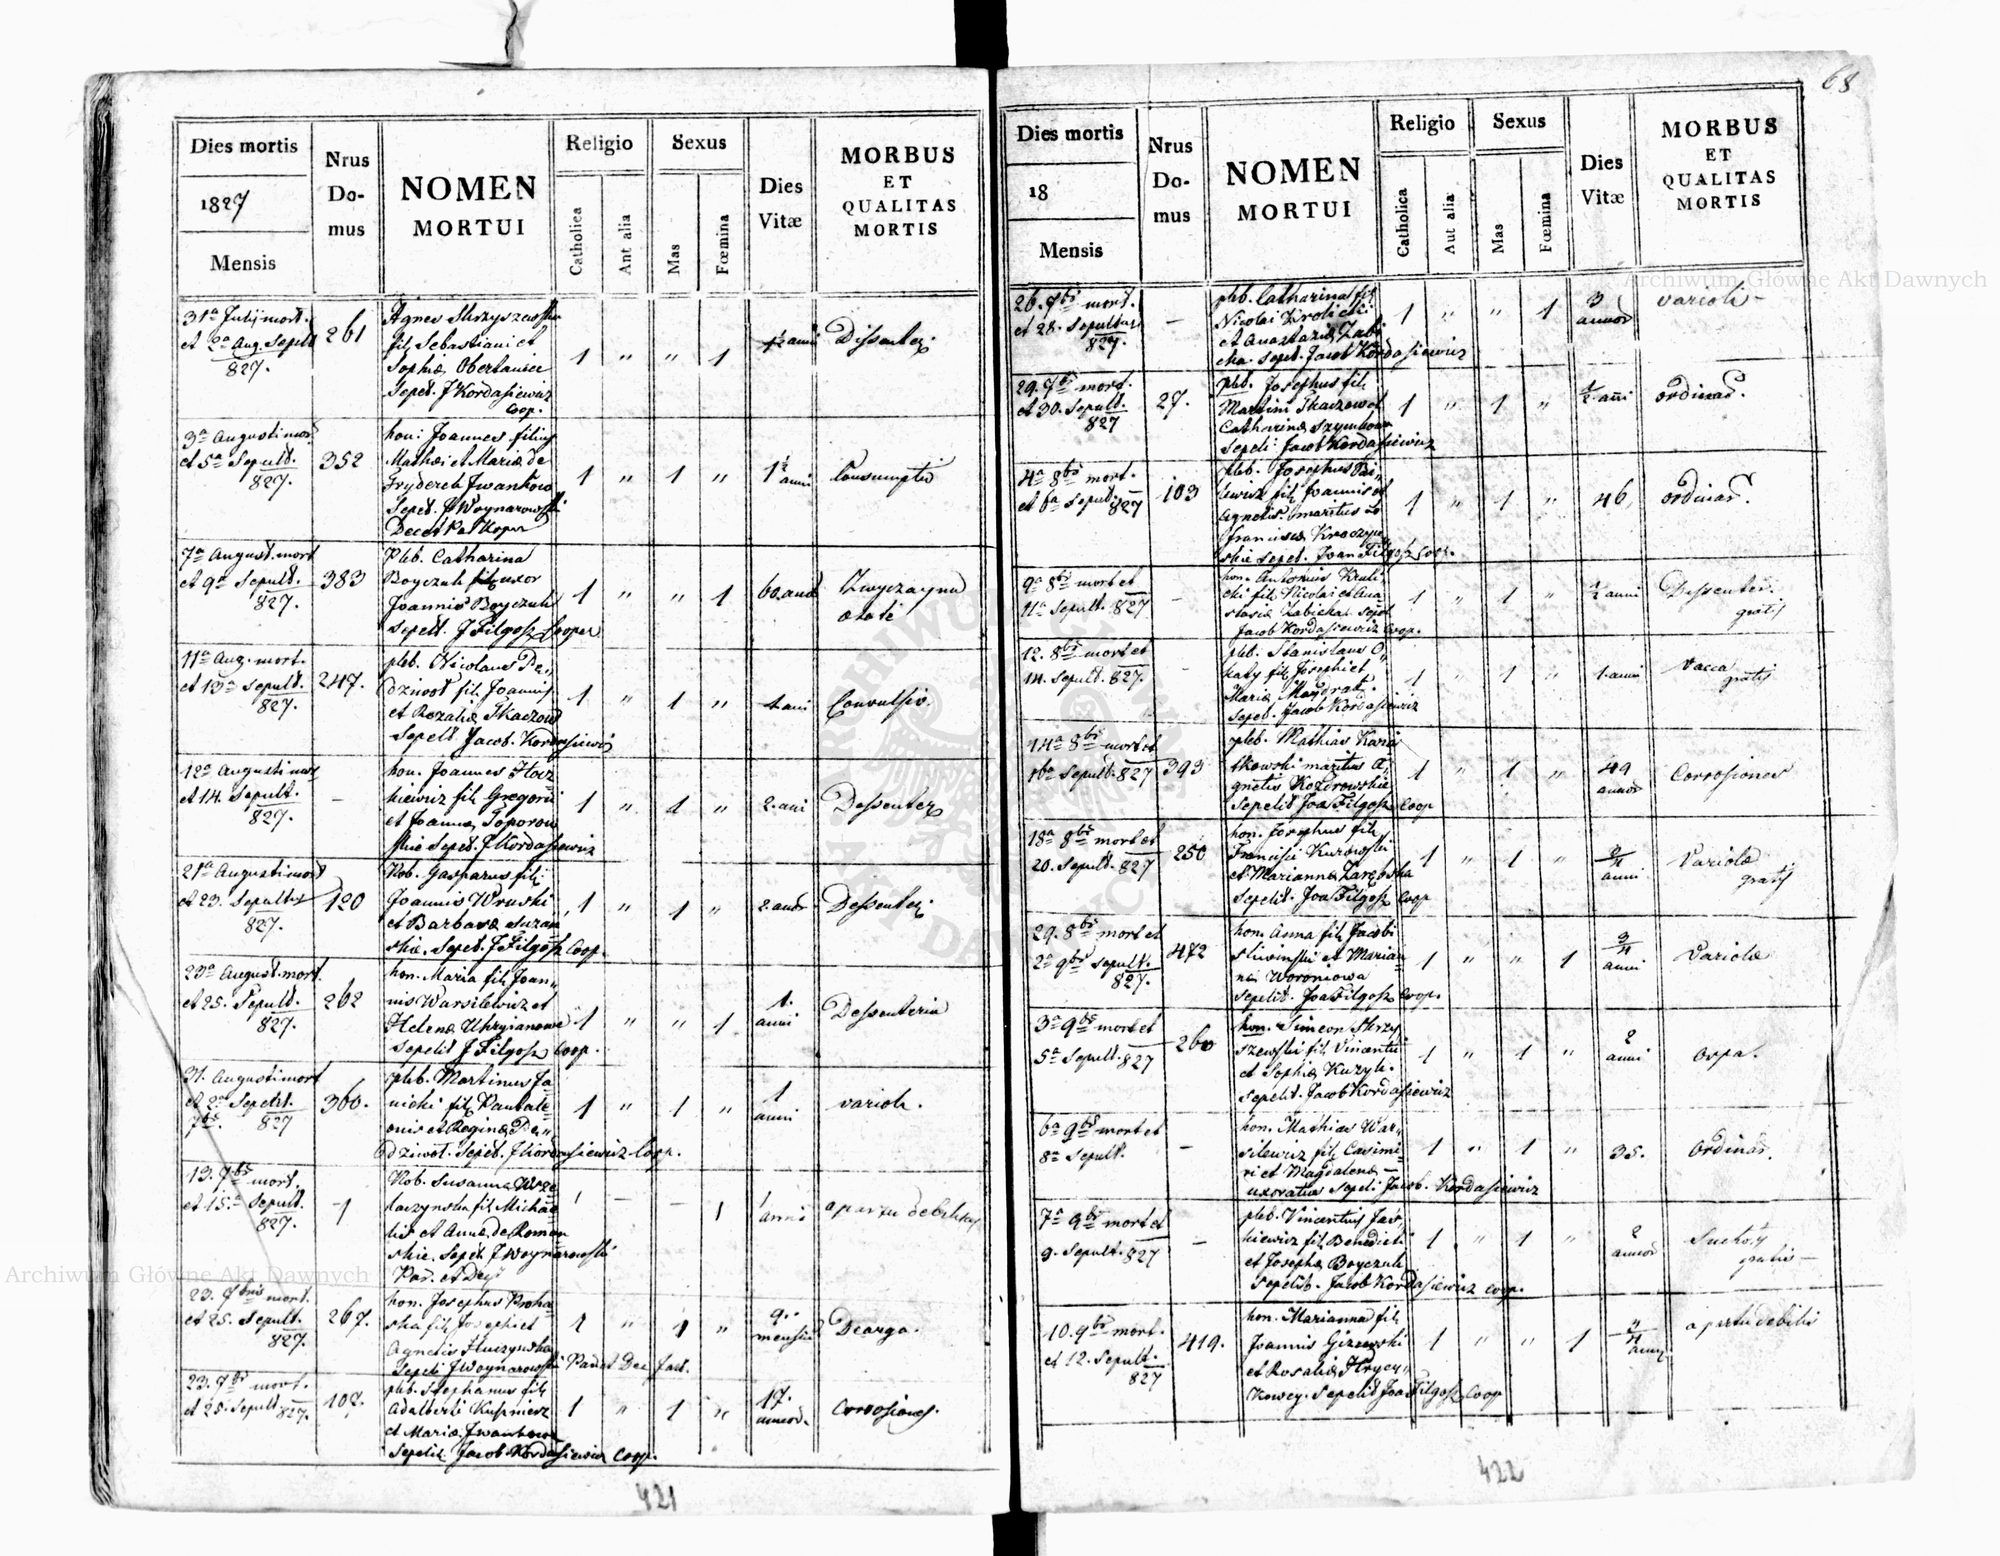 Dies mortis
1827
Mensis
Nrus
Do-
mus
NOMEN
MORTUI
Religio
Catholica
Ant alia
Sexus
Mas
Fœmina
Dies
Vitæ
MORBUS
ET
QUALITAS
MORTIS
31a Julij mort.
et 2a Aug. Sepult
827.
261
Agnes Skrzyszewska
fil. Sebastiani et
Sophia
Sepel. J Kordasiewicz
Coop.
1 " " 1
3a Augusti mor
et 5a Sepult.
827.
352
hon: Joannes filius
Mathæi et Maria de
Fryderek Iwankow
Sepel. J Woynarowski
1 " 1 "
1 1/2 anni
Consumptio
7a August. mort
et 9a Sepult.
827.
383
Pleb. Catharina
Boyczuk fil. uxor
Joannis Boyczuk
sepelt. J Filgosz Cooper
1 " " 1
60. and
Zwyczayna
ætate
11a Aug. mort.
et 13a Sepult.
827.
247.
pleb. Nicolaus Pe,,
dziwot fil. Joannis
et Rozalia Tkaczow
Sepelt Jacob. Kordasiewicz
1 " 1 "
1 ani
Convulsiv.
12a Augusti mor
et 14. Sepult.
827.
-
hon. Joannes
kiewicz fil. Gregorii
et Joanna Toporow
skie Sepel. J Kordasiewicz
1 " 1 "
2. ani
Dessenter
21a Augusti mort
et 23. Sepultus
827.
120
Nob. Gasparus fil.
Joannis Wruski
et Barbara
skie. Sepel. J Filgosz Coop.
1 " 1 "
2. andr.
Dessenter.
23a August. mort.
et 25. Sepult.
827.
262
hon. Maria fil. Joan,,
nis Wasilewicz et
Helena
Sepelit J Filgosz Coop.
1 " " 1
1.
anni
Dessenteria
31. Augusti mort
et 2a Sepelt.
7bs. 827
360.
pleb. Martinus Ja
nicki fil. Pantale
onis et Regina Pe,,
dziwot. Sepel. J Kordasiewicz Coop.
1 " 1 "
1
anni
varioli.
13. 7bs mort.
et 15. Sepult.
827.
1
Nob. Susanna
fil. Michae
lis et Anna de Roman
skie. Sepel. J Woynarowski
Par. et Dec
1 - - 1
1
anni
a partu debilitas
23. 7bris mort.
et 25. Sepult.
827.
267.
hon. Josephus Proha
ska fil. Josephi et
Agnetis
Sepeli J Woynarowski Par et Dec
1 " 1 "
9.
mensium
Dearga.
23. 7bs mort.
et 25. Sepult 827.
107.
pleb. Stephanus fil.
Adalberti Kuspnierz
et Maria Iwankowa
Sepelit Jacob Kordasiewicz Coop.
1 " 1 "
17.
annor.
Corrosiones.
421
68
Dies mortis
18
Mensis
Nrus
Do-
mus
NOMEN
MORTUI
Religio
Catholica
Aut alia
Sexus
Mas
Fœmina
Dies
Vitæ
MORBUS
ET
QUALITAS
MORTIS
26. 7bs mort.
et 28. Sepultus
827.
-
pleb. Catharina fil
Nicolai Krolicki
et Anastazia Zabi
cka. Sepel. Jacob Kordasiewicz
1 " " 1
3
annor
varioli -
29. 7bs mort.
et 30. Sepult.
827
27.
pleb. Josephus fil.
Martini Tkaczow et
Catharina Szymkow
Sepeli Jacob Kordasiewicz
1 " 1 "
1/2 ani
ordinar.
4a 8bs mort.
et 6a Sepult. 827
103
pleb. Josephus
lewicz fil. Joannis et
Agnetis. maritus
Francisca
skie sepel. Joan Filgosz Coop.
1 " 1 "
46.
ordinar.
9a 8bs mort et
11a Sepult. 827
-
hon. Antonius Kroli
cki fil. Nicolai et Ana
stasia Zabickai sepel
Jacob Kordasiewicz Coop.
1 " 1 "
1/2 anni
Dessenter.
gratis
12. 8bs mort et
14. Sepult. 827.
-
pleb. Stanislaus O,,
katy fil. Josephi et
Maria Maydrat.
Sepel. Jacob Kordasiewicz
1 " 1 "
1 anni
Vacca
gratis
14a 8bs mort et
16a Sepult. 827
393
pleb. Mathias
tkowski maritus A,,
gnetis Kozdrowskie
Sepelit Joa Filgosz Coop
1 " 1 "
49
annor
Corrosiones
18a 8bs mort et
20. Sepult. 827
250
hon. Josephus fil.
Francisci Kurowski
et Marianna Zarębska
Sepelit. Joa Filgosz Coop
1 " 1 "
2/4
anni
Variola
gratis
29. 8bs mort et
2a 9bs Sepult.
827.
472
hon. Anna fil. Jacobi
Sliwinski et Marian
na Woroniowa
Sepelit. Joa Filgosz Coop.
1 " " 1
3/4
anni
Variola
3a 9bs mort et
5a Sepult. 827
260
hon. Simeon Skrzy
szewski fil. Vincentii
et Sophia Kuzyk.
Sepelit. Jacob Kordasiewicz
1 " 1 "
2
anni
ospa.
6a 9bs mort et
8a Sepult.
-
hon. Mathias Was,,
silewicz fil. Casimi,,
ri et Magdalena -
uxoratus sepeli Jacob. Kordasiewicz
1 " 1 "
35.
Ordinar.
7a 9bs mort et
9. Sepult. 827
-
pleb. Vincentius Jas,,
kiewicz fil. Benedicti
et Josepha Boyczuk
Sepelit. Jacob Kordasiewicz coop.
1 " 1 "
2
annor
Suchoty
gratis -
10. 9bs mort.
et 12. Sepult.
827
419.
hon. Marianna fil.
Joannis Gizowski
et Rosalia Hrycy,,
kowey. Sepelit Joa Filgosz Coop
1 " " 1
3/4
anni
a partu debilis
422
Archiwum Główne Akt Dawnych
Archiwum Główne Akt Dawnych